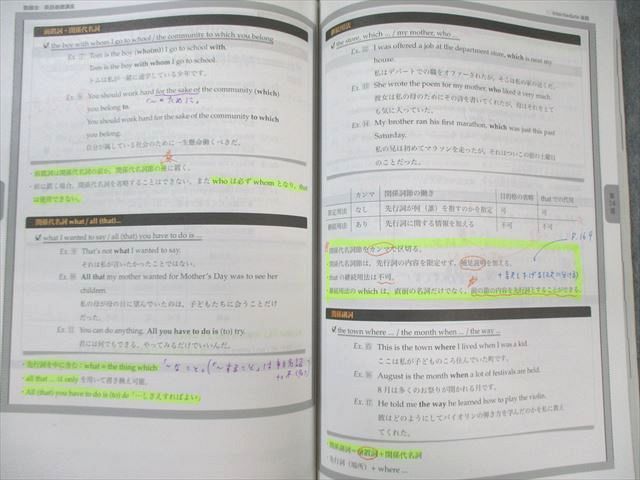 前置詞＋関係代名詞
✓ the boy with whom I go to school / the community to which you belong
Ex. ⑦ Tom is the boy (who(m)) I go to school with.
Tom is the boy with whom I go to school.
トムは私が一緒に通学している少年です。
Ex. ⑧ You should work hard for the sake of the community (which)
you belong to.
〜のために。
You should work hard for the sake of the community to which
you belong.
自分が属している社会のために一生懸命働くべきだ。
・前置詞は関係代名詞の前か、関係代名詞節の後に置く。
・前に置く場合、関係代名詞を省略することはできない。また who は必ず whom となり、that
は使用できない。
関係代名詞 what / all (that)...
✓ what I wanted to say / all (that) you have to do is ...
Ex. ⑨ That's not what I wanted to say.
それは私が言いたかったことではない。
Ex. ⑩ All that my mother wanted for Mother's Day was to see her
children.
私の母が母の日に望んでいたのは、子どもたちに会うことだけ
だった。
Ex. ⑪ You can do anything. All you have to do is (to) try.
君には何でもできる。やってみるだけでいいんだ。
・先行詞を中に含む：what = the thing which
・all that ... は only を用いて書き換え可能。
・All (that) you have to do is (to) do 「…しさえすればよい」
継続用法
Intermediate
✓ the store, which ... / my mother, who ...
Ex. ⑫ I was offered a job at the department store, which is near my
house.
私はデパートでの職をオファーされたが、そこは私の家の近くだ。
Ex. ⑬ She wrote the poem for my mother, who liked it very much.
彼女は私の母のためにその詩を書いてくれたが、母はそれをとて
も気に入っていた。
Ex. ⑭ My brother ran his first marathon, which was just this past
Saturday.
私の兄は初めてマラソンを走ったが、それはついこの前の土曜日
のことだった。
カンマ 関係詞節の働き 目的格の省略 that での代用
限定用法 なし 先行詞が何（誰）を指すのかを指定 可 可
継続用法 あり 先行詞に関する情報を加える 不可 不可
P.169
・関係代名詞節をカンマで区切る。
・関係代名詞節は、先行詞の内容を限定せず、補足説明を加える。
・that の継続用法は不可。
・継続用法の which は、直前の名詞だけでなく、前の節の内容を先行詞とすることができる。
第14講
関係副詞
✓ the town where ... / the month when ... / the way ...
Ex. ⑮ This is the town where I lived when I was a kid.
ここは私が子どものころ住んでいた町です。
Ex. ⑯ August is the month when a lot of festivals are held.
8月は多くのお祭りが開かれる月です。
Ex. ⑰ He told me the way he learned how to play the violin.
彼はどのようにしてバイオリンの弾き方を学んだのかを私に教え
てくれた。
・関係副詞＝前置詞＋関係代名詞
・先行詞（場所）＋ where ...